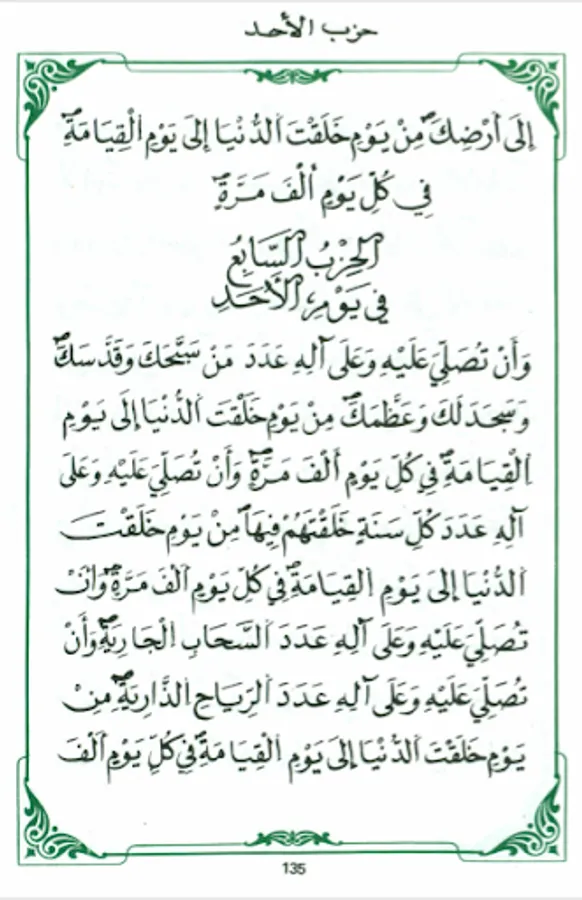 حزب الأحد
إِلَى أَرْضِكَ مِنْ يَوْمِ خَلَقْتَ الدُّنْيَا إِلَى يَوْمِ الْقِيَامَةِ
فِي كُلِّ يَوْمٍ أَلْفَ مَرَّةٍ
الْحِزْبُ السَّابِعُ
فِي يَوْمِ الْأَحَدِ
وَأَنْ تُصَلِّيَ عَلَيْهِ وَعَلَى آلِهِ عَدَدَ مَنْ سَبَّحَكَ وَقَدَّسَكَ
وَسَجَدَ لَكَ وَعَظَّمَكَ مِنْ يَوْمِ خَلَقْتَ الدُّنْيَا إِلَى يَوْمِ
الْقِيَامَةِ فِي كُلِّ يَوْمٍ أَلْفَ مَرَّةٍ وَأَنْ تُصَلِّيَ عَلَيْهِ وَعَلَى
آلِهِ عَدَدَ كُلِّ سَنَةٍ خَلَقْتَهُمْ فِيهَا مِنْ يَوْمِ خَلَقْتَ
الدُّنْيَا إِلَى يَوْمِ الْقِيَامَةِ فِي كُلِّ يَوْمٍ أَلْفَ مَرَّةٍ وَأَنْ
تُصَلِّيَ عَلَيْهِ وَعَلَى آلِهِ عَدَدَ السَّحَابِ الْجَارِيَةِ وَأَنْ
تُصَلِّيَ عَلَيْهِ وَعَلَى آلِهِ عَدَدَ الرِّيَاحِ الذَّارِيَةِ مِنْ
يَوْمِ خَلَقْتَ الدُّنْيَا إِلَى يَوْمِ الْقِيَامَةِ فِي كُلِّ يَوْمٍ أَلْفَ
135